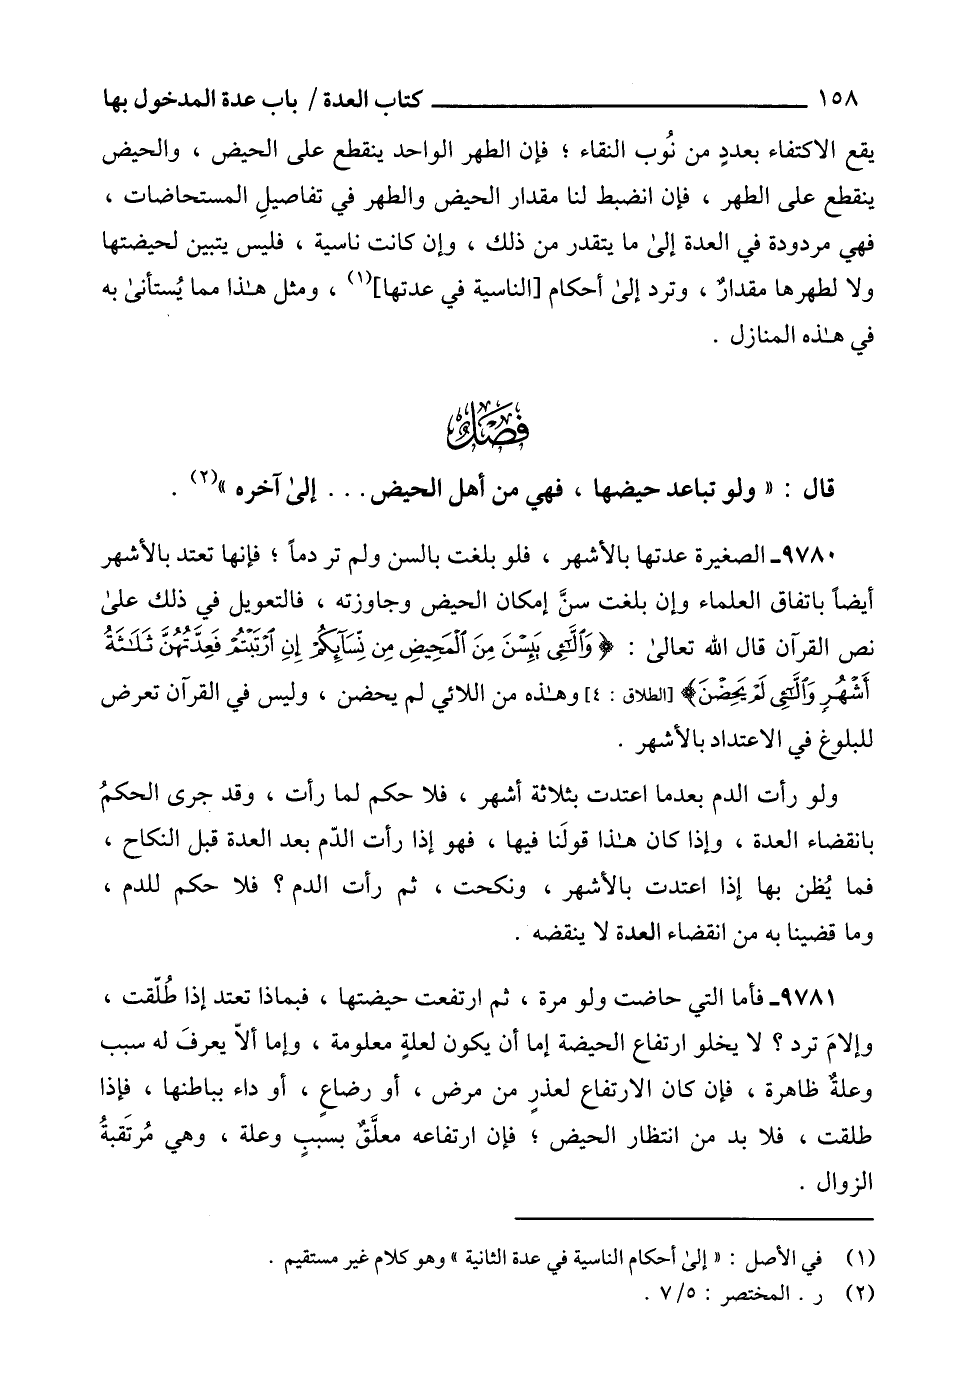 ١٥٨ ــــــــــــــــــــــــــــــــــ كتاب العدة / باب عدة المدخول بها
يقع الاكتفاء بعددٍ من نُوب النقاء ؛ فإن الطهر الواحد ينقطع على الحيض ، والحيض
ينقطع على الطهر ، فإن انضبط لنا مقدار الحيض والطهر في تفاصيلِ المستحاضات ،
فهي مردودة في العدة إلىٰ ما يتقدر من ذلك ، وإن كانت ناسية ، فليس يتبين لحيضتها
ولا لطهرها مقدارٌ ، وترد إلىٰ أحكام [الناسية في عدتها](١) ، ومثل هـٰذا مما يُستأنىٰ به
في هـٰذه المنازل .
فصل
قال : « ولو تباعد حيضها ، فهي من أهل الحيض . . . إلىٰ آخره »(٢) .
٩٧٨٠ـ الصغيرة عدتها بالأشهر ، فلو بلغت بالسن ولم تر دماً ؛ فإنها تعتد بالأشهر
أيضاً باتفاق العلماء وإن بلغت سنَّ إمكان الحيض وجاوزته ، فالتعويل في ذلك علىٰ
نص القرآن قال الله تعالىٰ : ﴿ وَٱلَّٰٓـِٔى بَيِٕسْنَ مِنَ ٱلْمَحِيضِ مِن نِّسَآئِكُمْ إِنِ ٱرْتَبْتُمْ فَعِدَّتُهُنَّ ثَلَٰثَةُ
أَشْهُرٍ وَٱلَّٰٓـِٔى لَمْ يَحِضْنَ﴾ [الطلاق : ٤] وهـٰذه من اللائي لم يحضن ، وليس في القرآن تعرض
للبلوغ في الاعتداد بالأشهر .
ولو رأت الدم بعدما اعتدت بثلاثة أشهر ، فلا حكم لما رأت ، وقد جرى الحكمُ
بانقضاء العدة ، وإذا كان هـٰذا قولَنا فيها ، فهو إذا رأت الدّم بعد العدة قبل النكاح ،
فما يُظن بها إذا اعتدت بالأشهر ، ونكحت ، ثم رأت الدم ؟ فلا حكم للدم ،
وما قضينا به من انقضاء العدة لا ينقضه .
٩٧٨١ـ فأما التي حاضت ولو مرة ، ثم ارتفعت حيضتها ، فبماذا تعتد إذا طُلّقت ،
وإلامَ ترد ؟ لا يخلو ارتفاع الحيضة إما أن يكون لعلةٍ معلومة ، وإما ألاّ يعرفَ له سبب
وعلةٌ ظاهرة ، فإن كان الارتفاع لعذرٍ من مرض ، أو رضاعٍ ، أو داء بباطنها ، فإذا
طلقت ، فلا بد من انتظار الحيض ؛ فإن ارتفاعه معلَّقٌ بسببٍ وعلة ، وهي مُرتقبةُ
الزوال .
(١) في الأصل : « إلىٰ أحكام الناسية في عدة الثانية » وهو كلام غير مستقيم .
(٢) ر . المختصر : ٧/٥ .